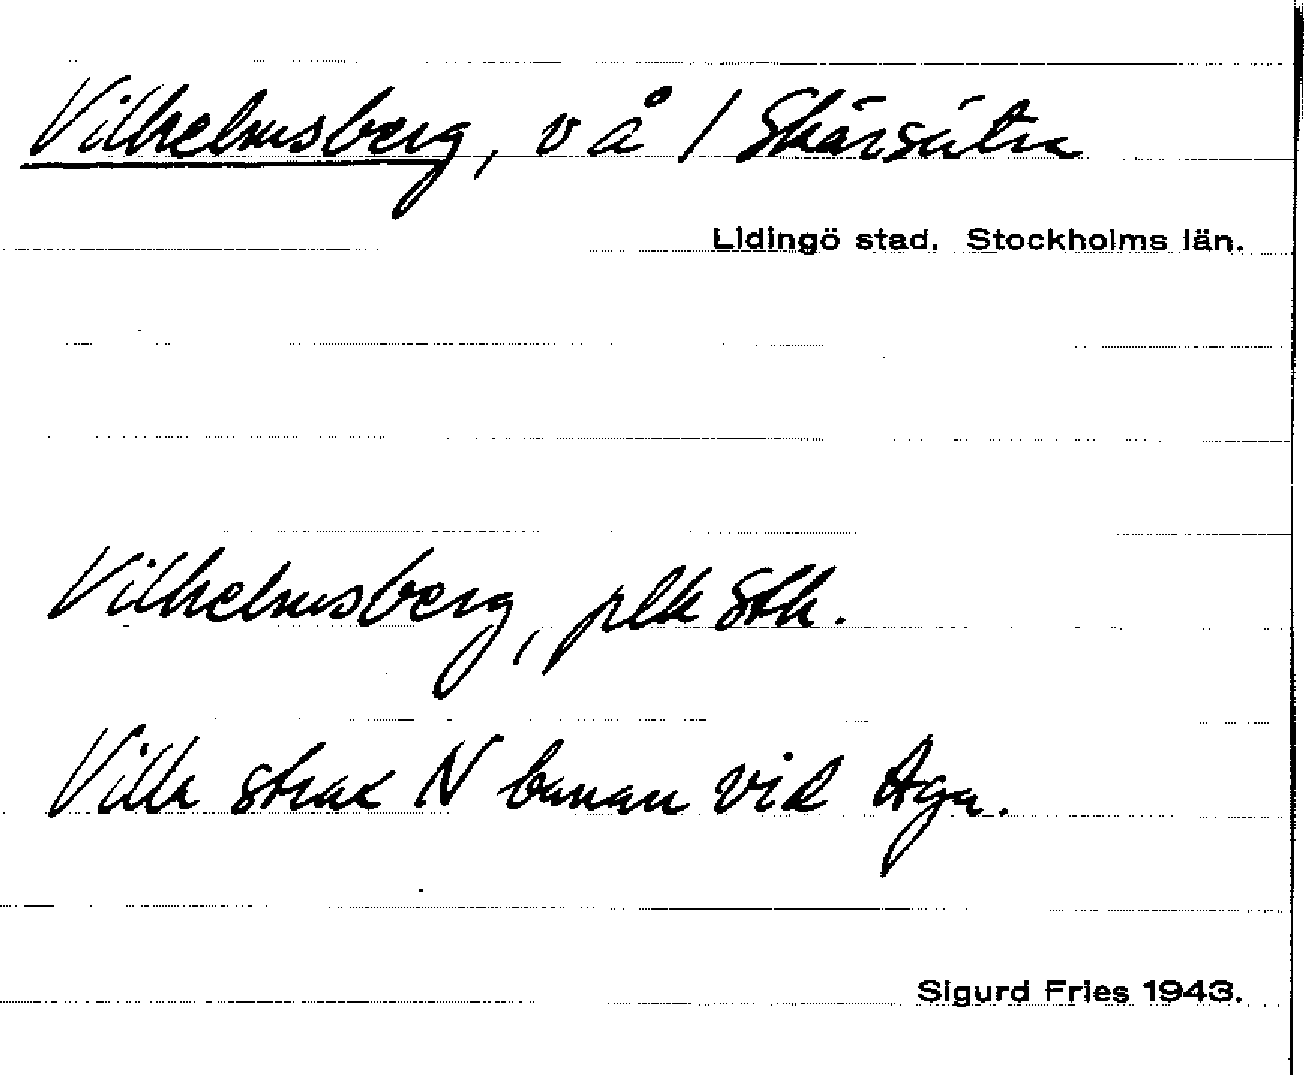 Vilhelmsberg, vå / Skärsätra
Lidingö stad. Stockholms län.
Vilhelmsberg, plk Stk.
Villa strax N banan vid Aga.
Sigurd Fries 1943.